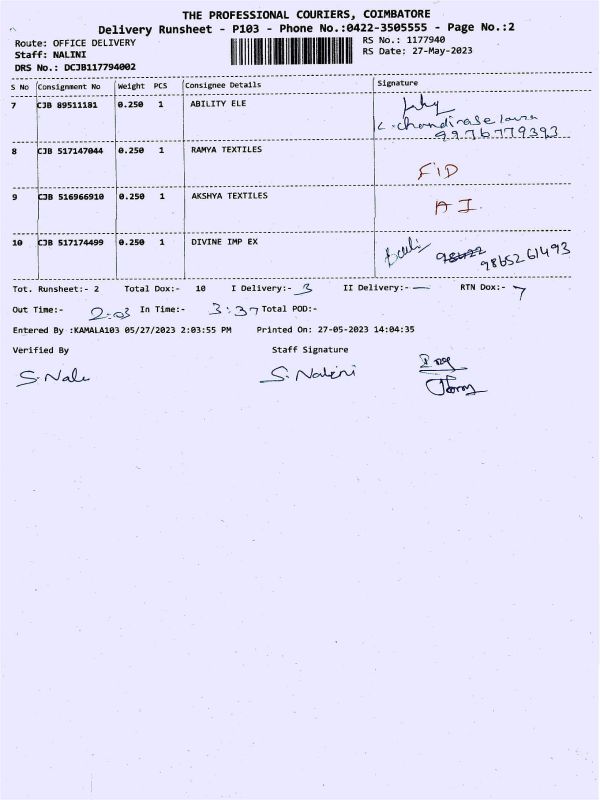 THE PROFESSIONAL COURIERS, COIMBATORE
Delivery Runsheet - P103 - Phone No.:0422-3505555 - Page No.:2
Route: OFFICE DELIVERY
Staff: NALINI
DRS No.: DCJB117794002
RS No.: 1177940
RS Date: 27-May-2023
S No Consignment No Weight PCS Consignee Details Signature
7 CJB 89511181 0.250 1 ABILITY ELE
9976779393
8 CJB 517147044 0.250 1 RAMYA TEXTILES
FID
9 CJB 516966910 0.250 1 AKSHYA TEXTILES
AI
10 CJB 517174499 0.250 1 DIVINE IMP EX
9865261493
Tot. Runsheet:- 2 Total Dox:- 10 I Delivery:- 3 II Delivery:- — RTN Dox:- 7
Out Time:- 2:03 In Time:- 3:37 Total POD:-
Entered By :KAMALA103 05/27/2023 2:03:55 PM Printed On: 27-05-2023 14:04:35
Verified By Staff Signature
S. Nali S. Nalini